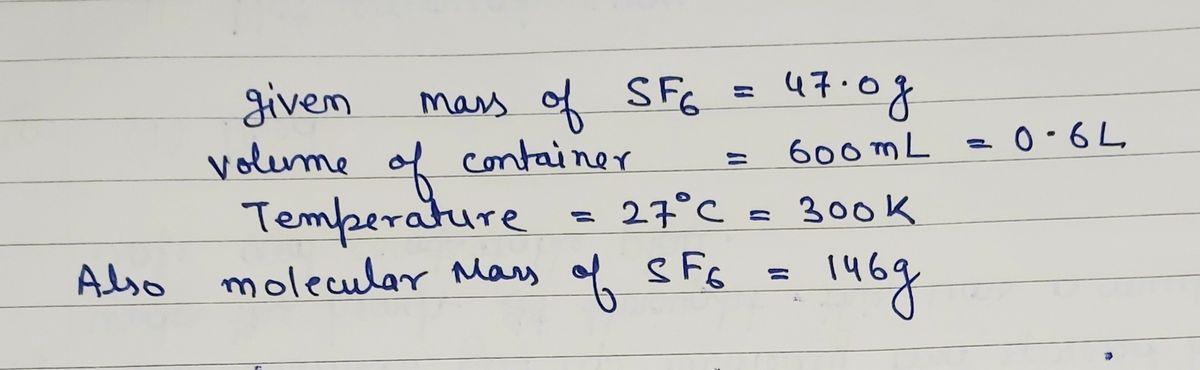 given mass of SF6 = 47.0g
volume of container = 600mL = 0.6L
Temperature = 27°C = 300K
Also molecular Mass of SF6 = 146g